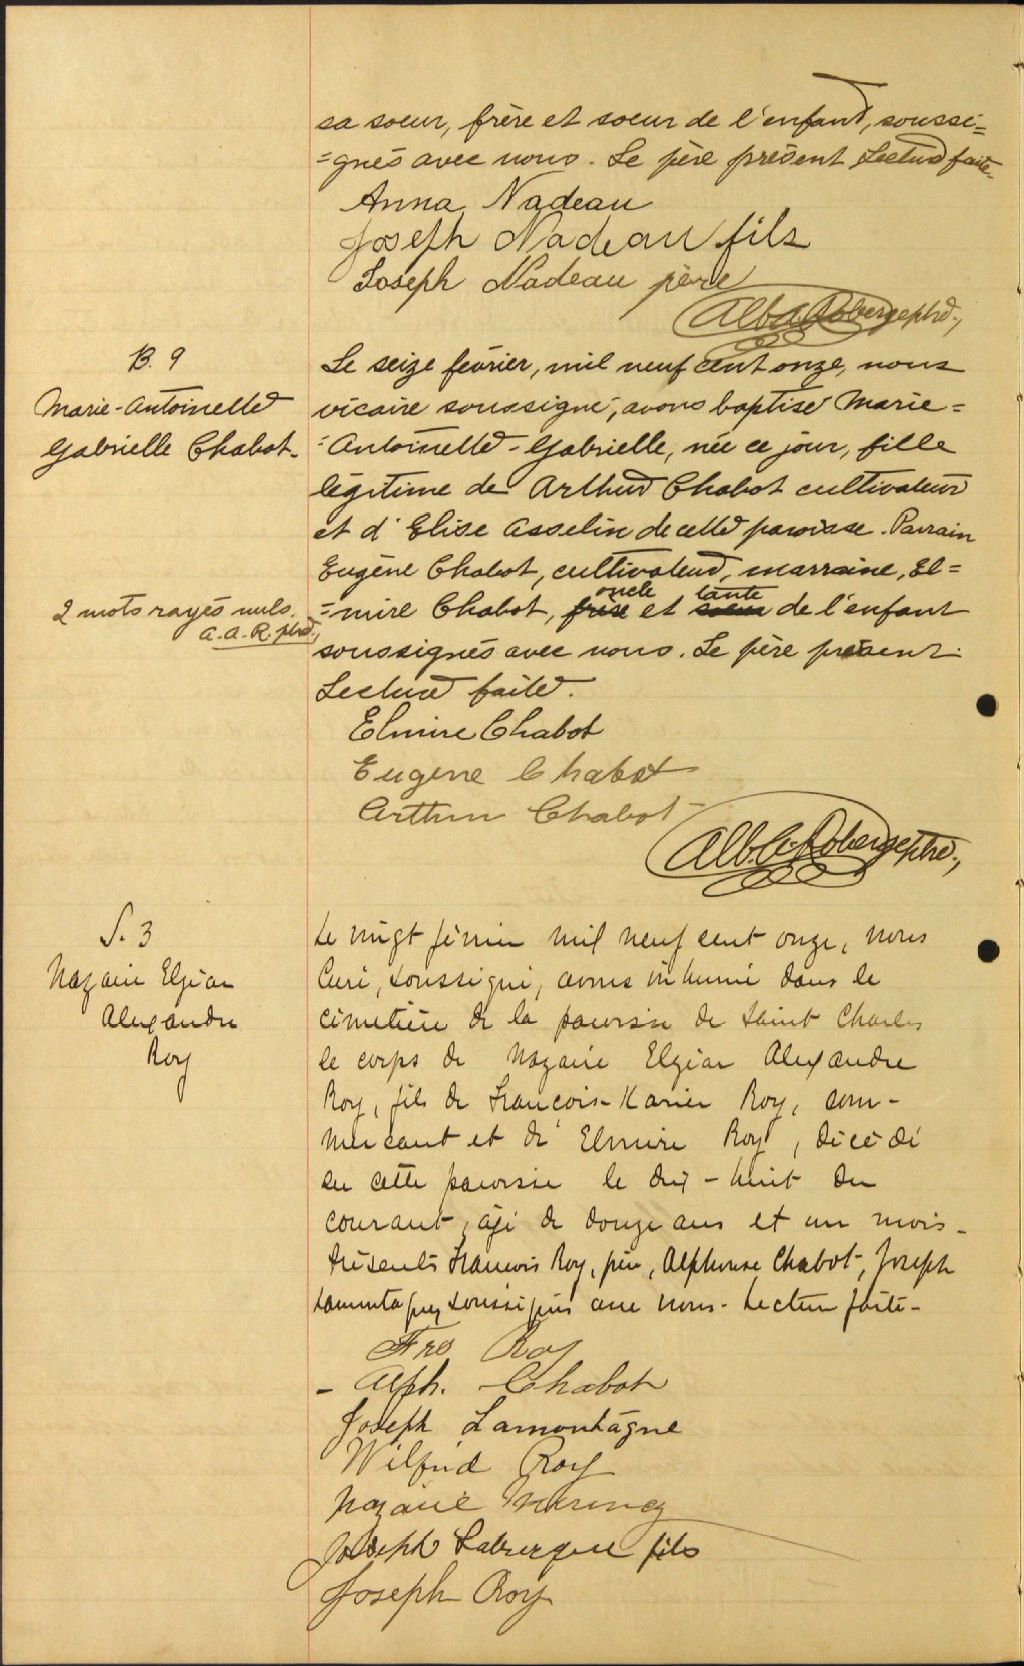 sa soeur, frère et soeur de l'enfant, soussi=
=gnés avec nous. Le père présent Lecture faite.
Anna Nadeau
Joseph Nadeau fils
Joseph Nadeau père
Alb. A. Roberge ptre.,
B. 9
Marie-Antoinette
Gabrielle Chabot.
Le seize février, mil neuf cent onze, nous
vicaire soussigné, avons baptisé Marie=
=Antoinette-Gabrielle, née ce jour, fille
légitime de Arthur Chabot cultivateur
et d'Elise Asselin de cette paroisse. Parrain
Eugène Chabot, cultivateur, marraine, El=
oncle tante
=mire Chabot, frère et soeur de l'enfant
2 mots rayés nuls.
A. A. R. ptre.,
soussignés avec nous. Le père présent.
Lecture faite.
Elmire Chabot
Eugène Chabot
Arthur Chabot
Alb. A. Roberge ptre.,
S. 3
Nazaire Elzéar
Alexandre
Roy
Le vingt février mil neuf cent onze, nous
Curé, soussigné, avons inhumé dans le
cimetière de la paroisse de Saint Charles
le corps de Nazaire Elzéar Alexandre
Roy, fils de François-Xavier Roy, com-
merçant et de Elmire Roy, décédé
en cette paroisse le dix-huit du
courant, âgé de douze ans et un mois-
Présents François Roy, père, Alphonse Chabot, Joseph
Lamontagne, soussignés avec nous- Lecture faite-
Frs Roy
- Alph. Chabot
Joseph Lamontagne
Wilfrid Roy
Nazaire
Joseph Labergue fils
Joseph Roy